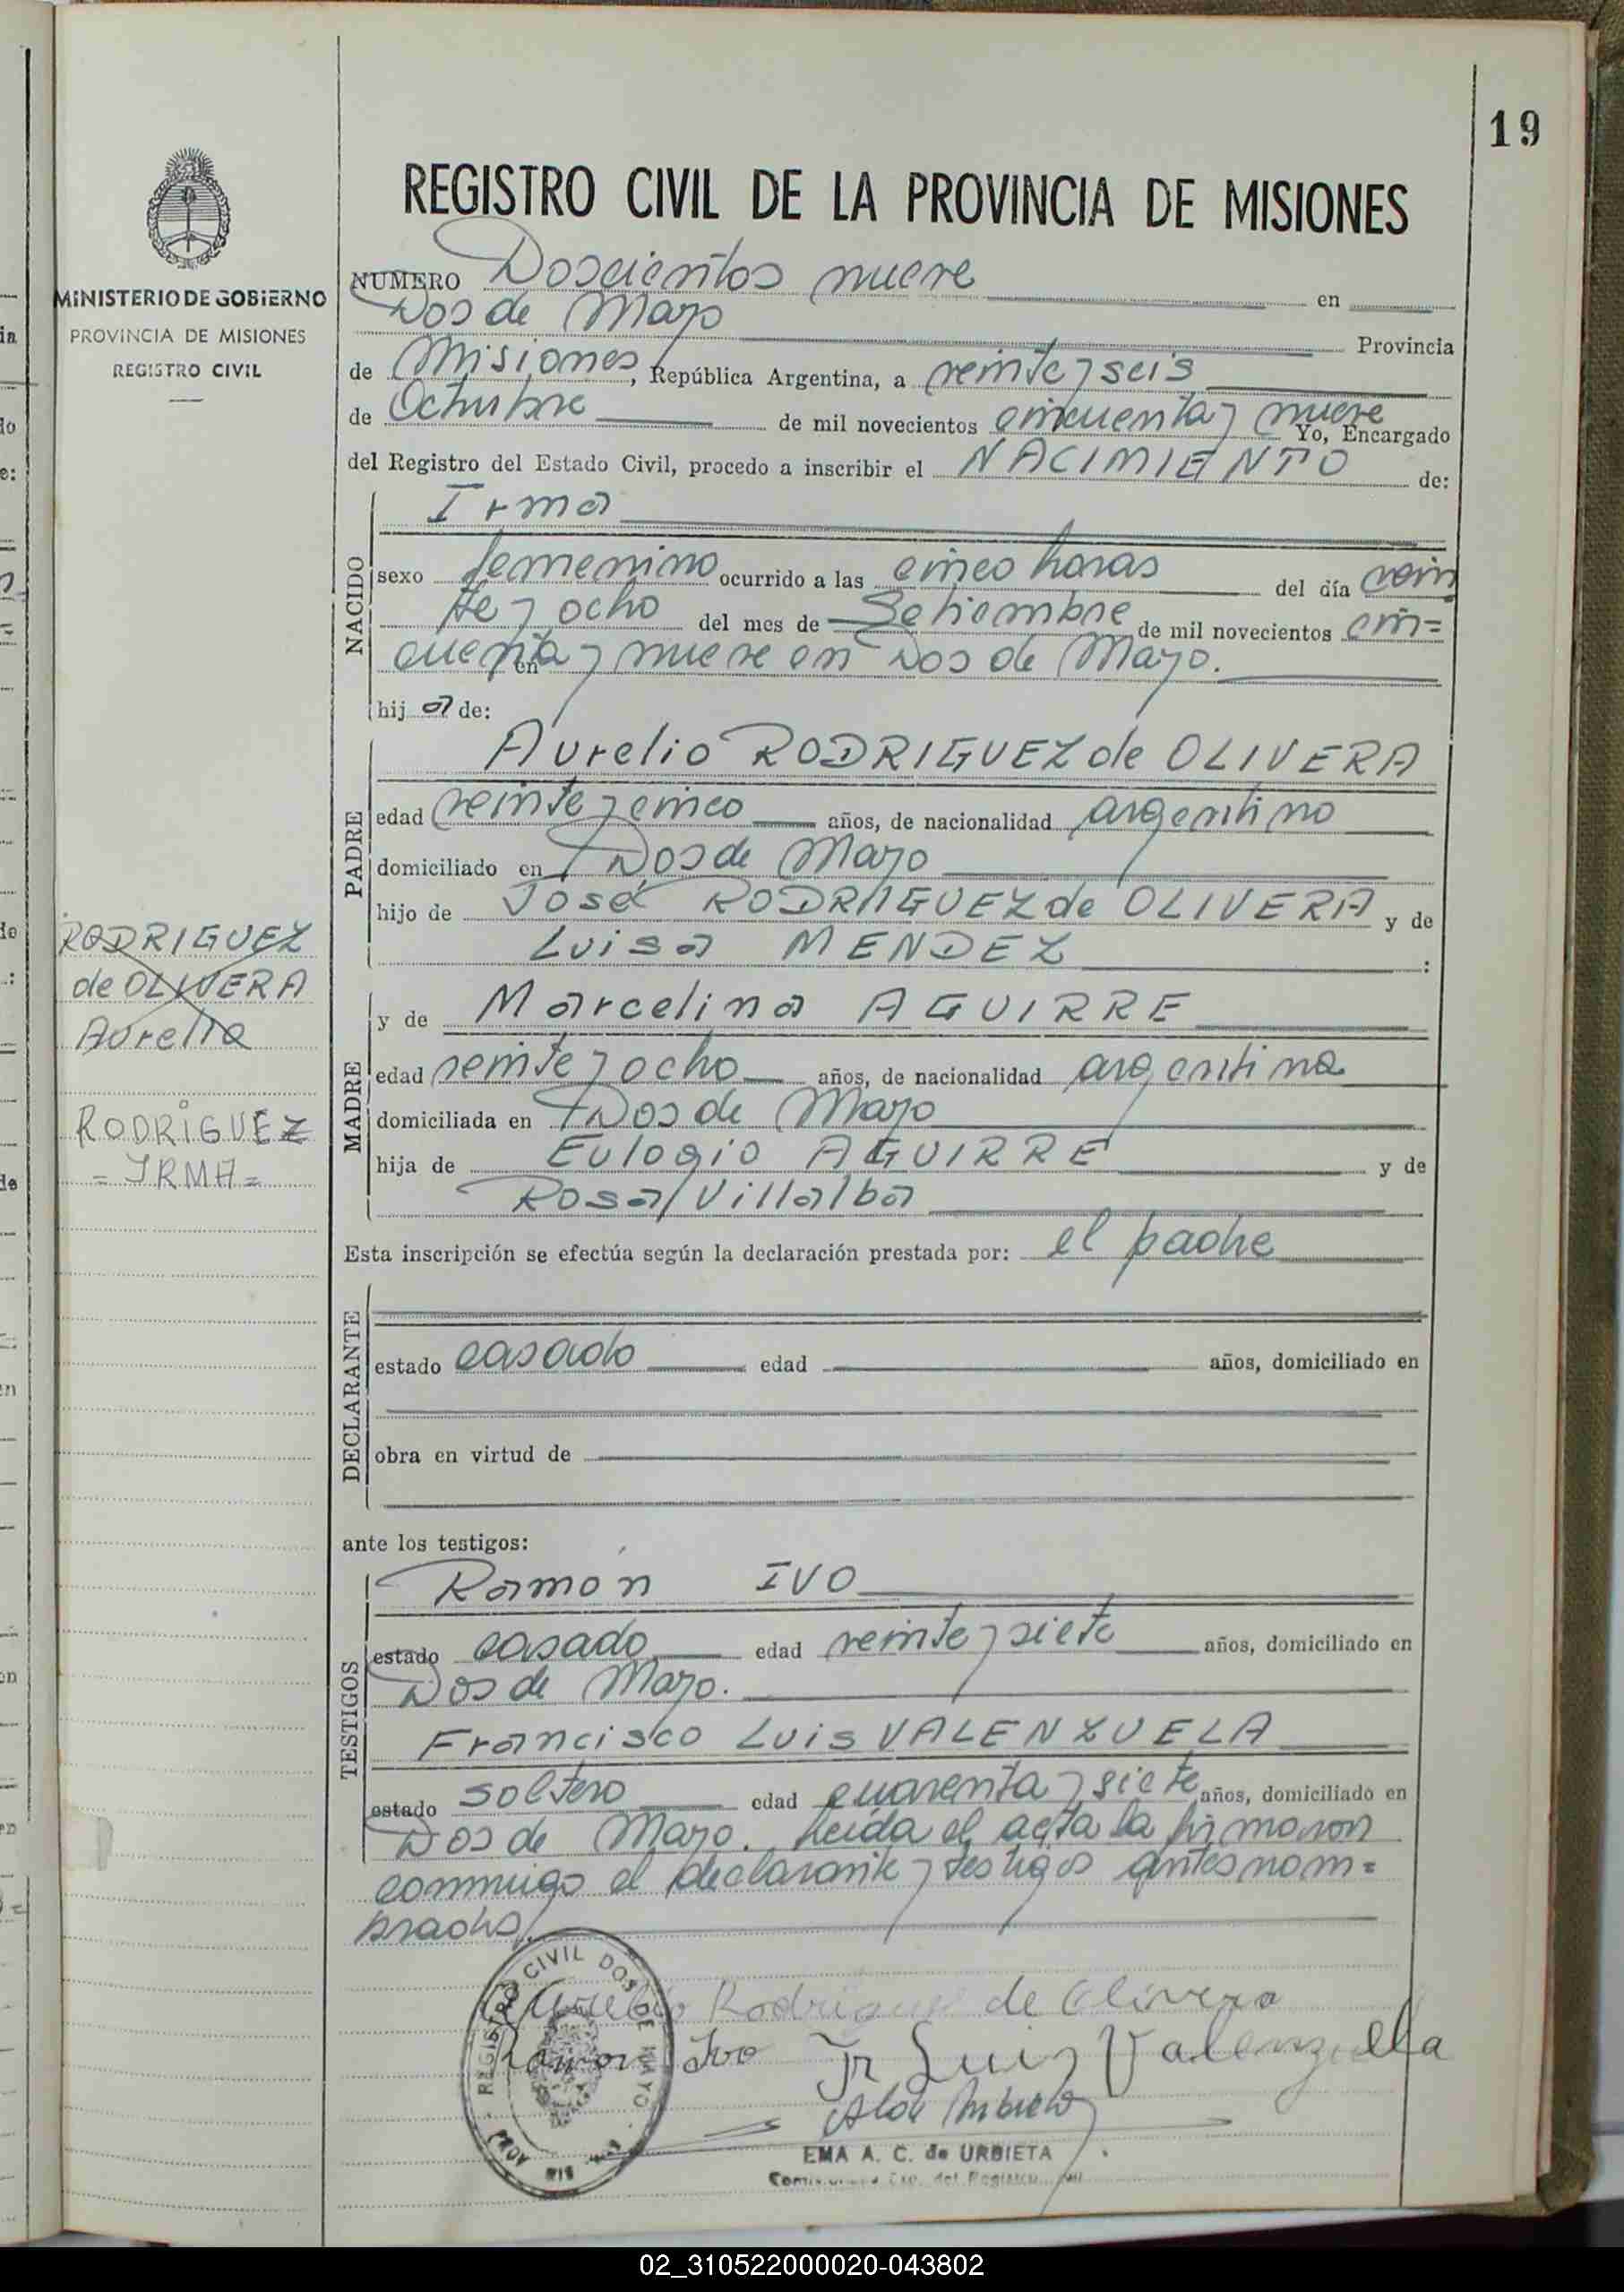 19
REGISTRO CIVIL DE LA PROVINCIA DE MISIONES
MINISTERIO DE GOBIERNO
PROVINCIA DE MISIONES
REGISTRO CIVIL
NUMERO Doscientos nueve en
Dos de Mayo Provincia
de Misiones, República Argentina, a veinte y seis
de Octubre de mil novecientos cincuenta y nueve Yo, Encargado
del Registro del Estado Civil, procedo a inscribir el NACIMIENTO de:
NACIDO
Irma
sexo femenino ocurrido a las cinco horas del día vein
te y ocho del mes de Setiembre de mil novecientos cin=
cuenta y nueve en Dos de Mayo.
en
hij a de:
PADRE
Aurelio RODRIGUEZ de OLIVERA
edad veinte y cinco años, de nacionalidad argentino
domiciliado en Dos de Mayo
hijo de José RODRIGUEZ de OLIVERA y de
Luisa MENDEZ :
RODRIGUEZ
de OLIVERA
Aurelia
RODRIGUEZ
= IRMA =
MADRE
y de Marcelina AGUIRRE
edad veinte y ocho años, de nacionalidad argentina
domiciliada en Dos de Mayo
hija de Eulogio AGUIRRE y de
Rosa Villalba
Esta inscripción se efectúa según la declaración prestada por: el padre
DECLARANTE
estado casado edad años, domiciliado en
obra en virtud de
ante los testigos:
TESTIGOS
Ramón IVO
estado casado edad veinte y siete años, domiciliado en
Dos de Mayo.
Francisco Luis VALENZUELA
estado soltero edad cuarenta y siete años, domiciliado en
Dos de Mayo. Leída el acta la firmaron
conmigo el declarante y testigos antes nom=
brados.
REGISTRO CIVIL DOS DE MAYO
Aurelio Rodriguez de Olivera
Ramon Ivo Fr Luis Valenzuella
EMA A. C. de URBIETA
02_310522000020-043802